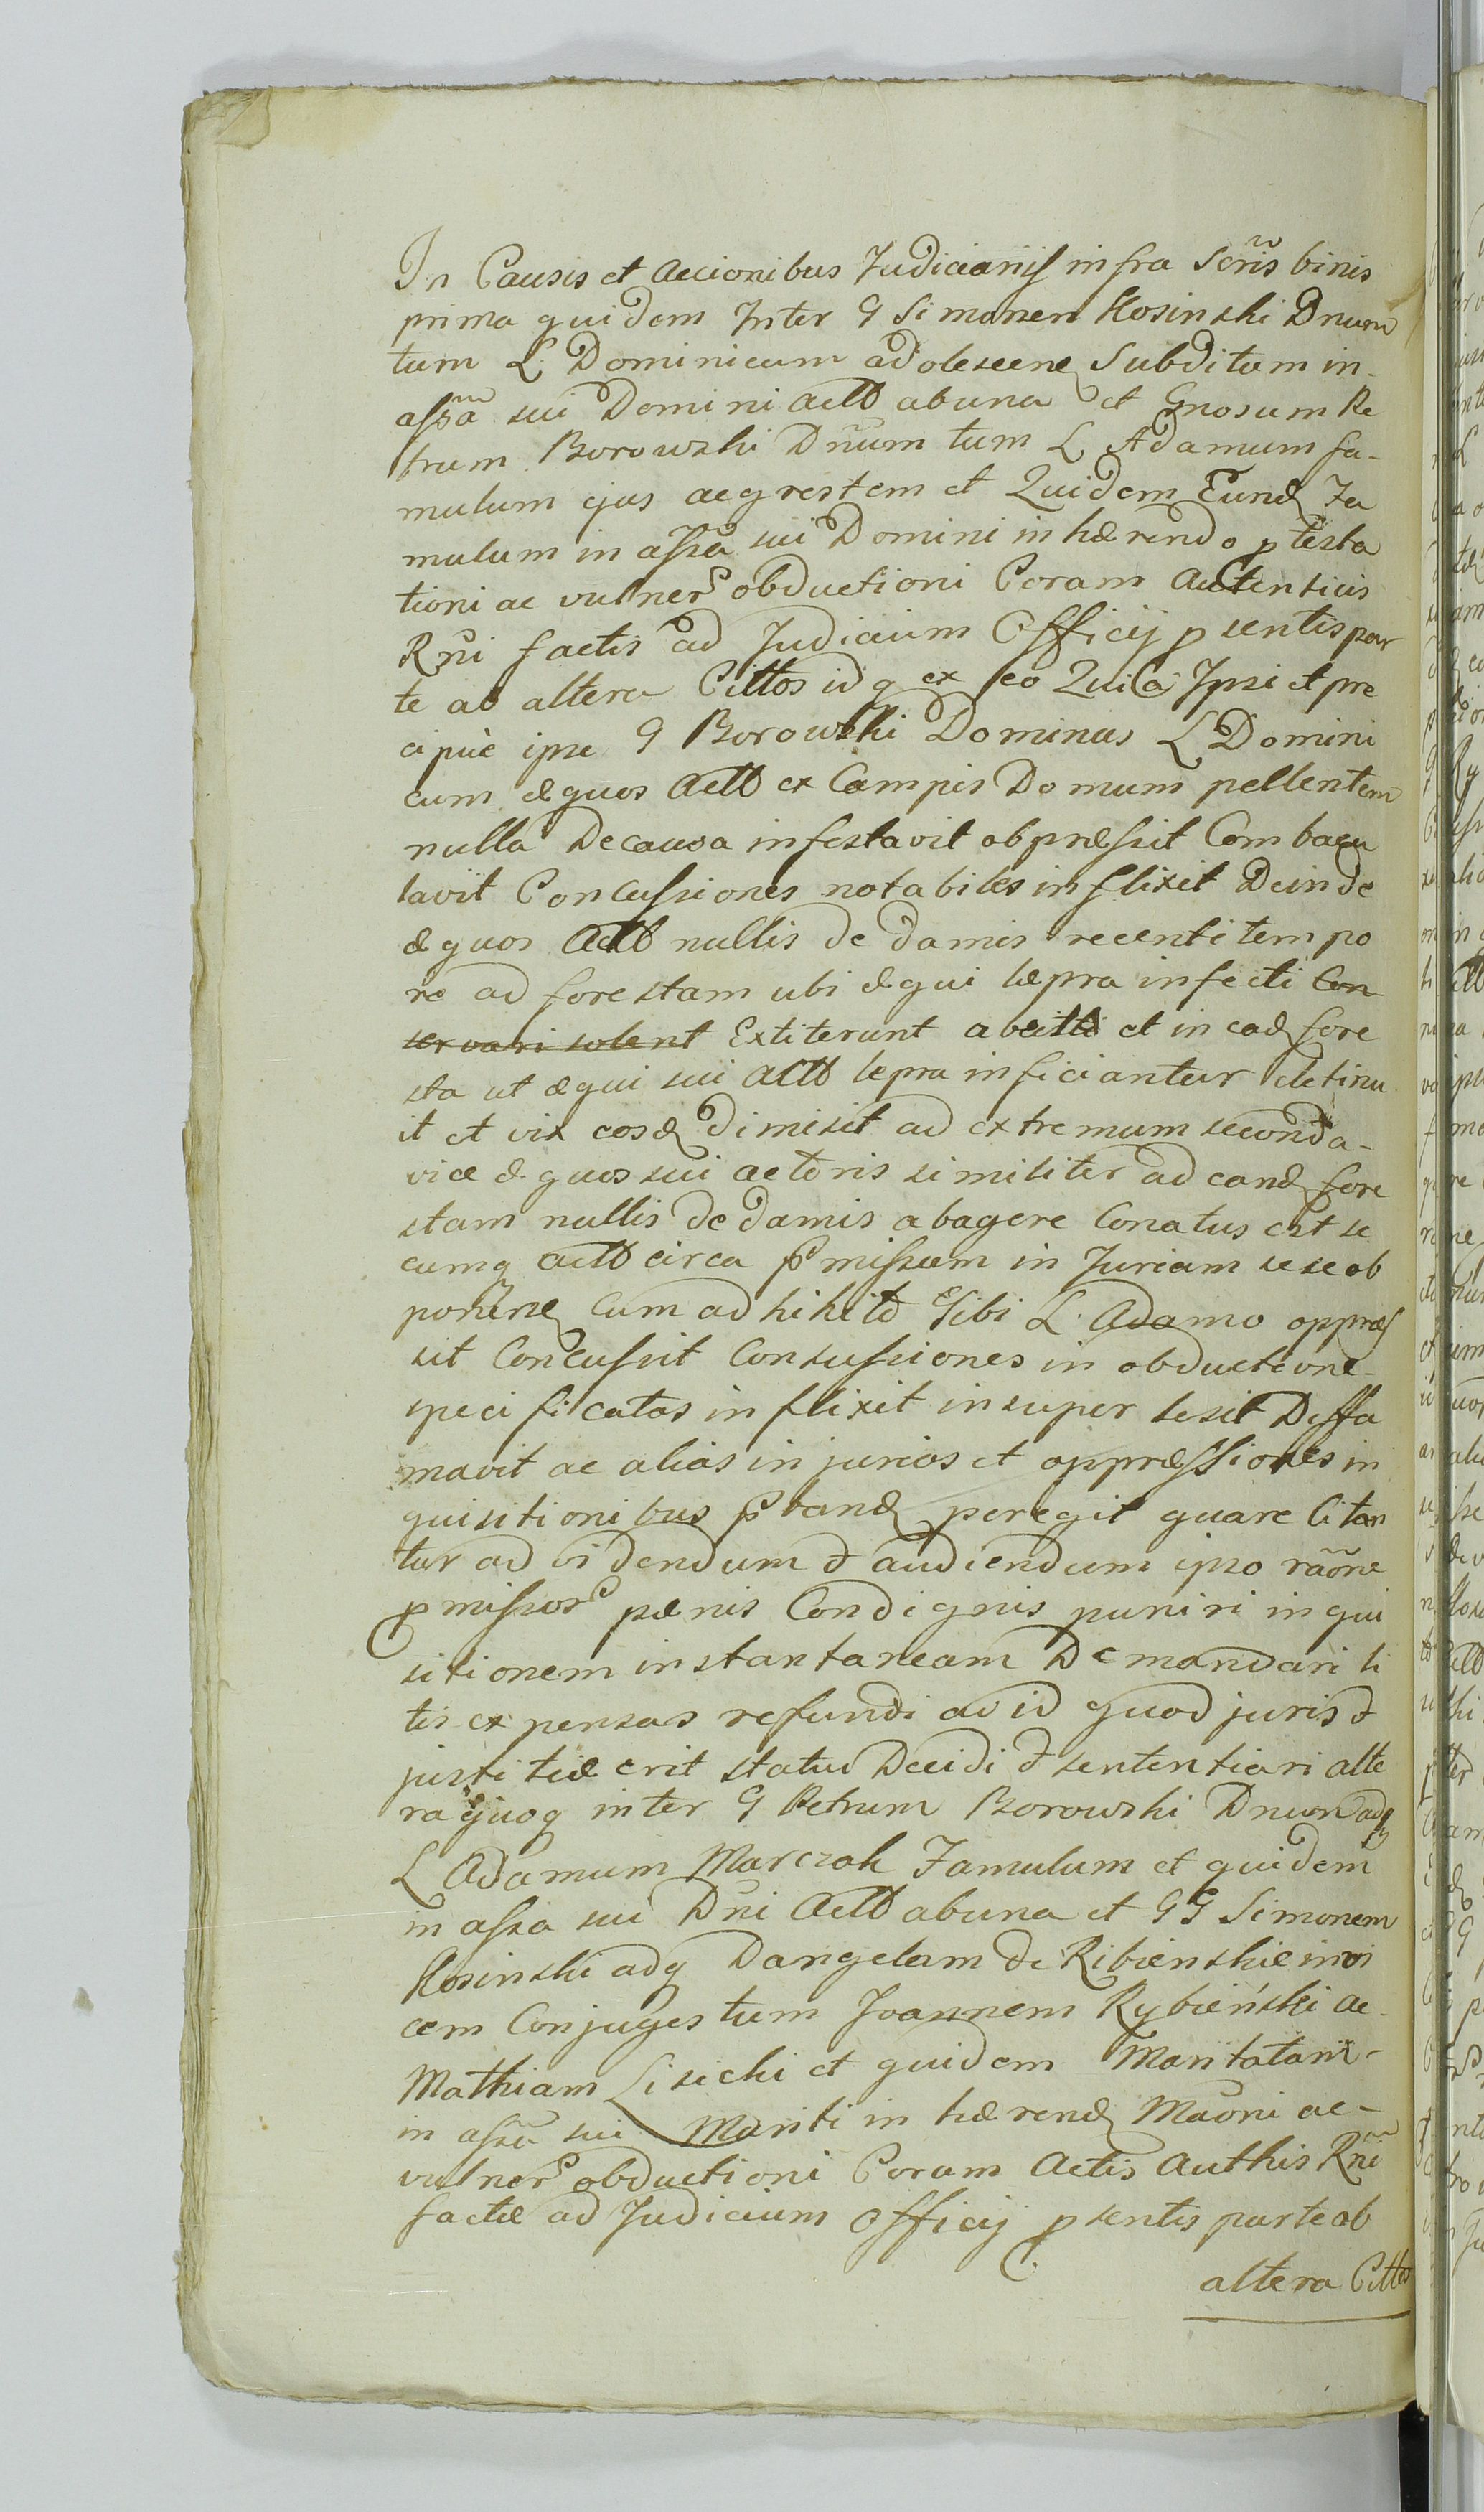 In Causis et accionibus Judiciariis infra Scris binis
prima quidem Inter G Simonem Kosinski Dnum
tum L Dominicum adolescene Subditum in
assa sui Domini Actt abuna et Gnosum Pe
trum Borowski Dnum tum L Adamum fa-
mulum ejus aegrestem et Quidem Eund Fa
mulum in assa sui Domini inhærendo ptesta
tioni ac vulner obductioni Coram Actensicis
Rni factis ad Judicium Officij psentis par
te ab altera Cittos idq ex eo Quia Ipsi et pre
cipuè ipse G Borowski Dominus L Domini
cum æquos Actt ex Campis Domum pellentem
nulla Decausa infestavit obpræssit Combacu
lavit Concussiones notabiles inflixit Deinde
æquos Actt nullis de damis recenti tempo
re ad forestam ubi æqui læpra infecti Con
servari solent Extiterunt abeitti et in ead fore
sta ut æqui sui Actt lepra inficiantur detinu
it et vix eosd dimisit ad extremum seconda-
vice æquos sui actoris similiter ad eand fore
stam nullis de damis abagere Conatus est se
cumq actt circa pmissam in Juriam sese ob
ponène Cum adhibito Sibi L. Adamo oppræs
sit Concussit Consussiones in obductione-
specificatas inflixit insuper lesit Deffa
mavit ac alias injurias et oppræssiones in
quisitionibus pband peregit quare Citan
tur ad videndum & audiendum ipso raone
pmissor pænis Condignis puniri inqui
sitionem instantaneam Demandari li
tis expensas refundi ad id quod juris &
justitiæ erit statui Decidi & sententiari alte
ra quoq inter G Petrum Borowski Dnum adq
L Adamum Marczak Famulum et quidem
in assa sui Dni Actt abuna et GG Simonem
Kosinski adq Dangelam de Ribienskie invi
cem Conjuges tum Joannem Rybieński ac
Mathiam Lisicki et quidem Maritatam-
in assa sui Mariti in hærend Maoni ac-
vulner obductioni Coram Actis Authis Rni
factæ ad Judicium Officij psentis parte ab
altera Cittos